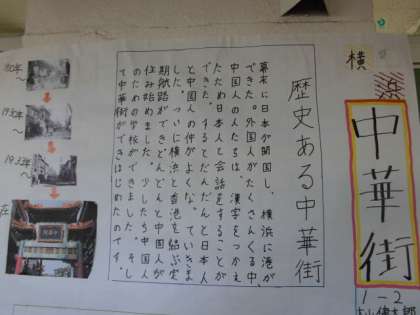 横浜
中華街
1-2
歴史ある中華街
幕末に日本が開国し、横浜に港が
できた。外国人がたくさんくる中、
中国人の人たちは、漢字をつかえ
たため日本人と会話をすることが
できた。するとだんだんと日本人
と中国人の仲がよくなっていきま
した。ついに横浜と香港を結ぶ定
期航路ができどんどんと中国人が
住み始めました。少したち中国人
のための学校ができました。そし
て中華街ができはじめたのです。
在